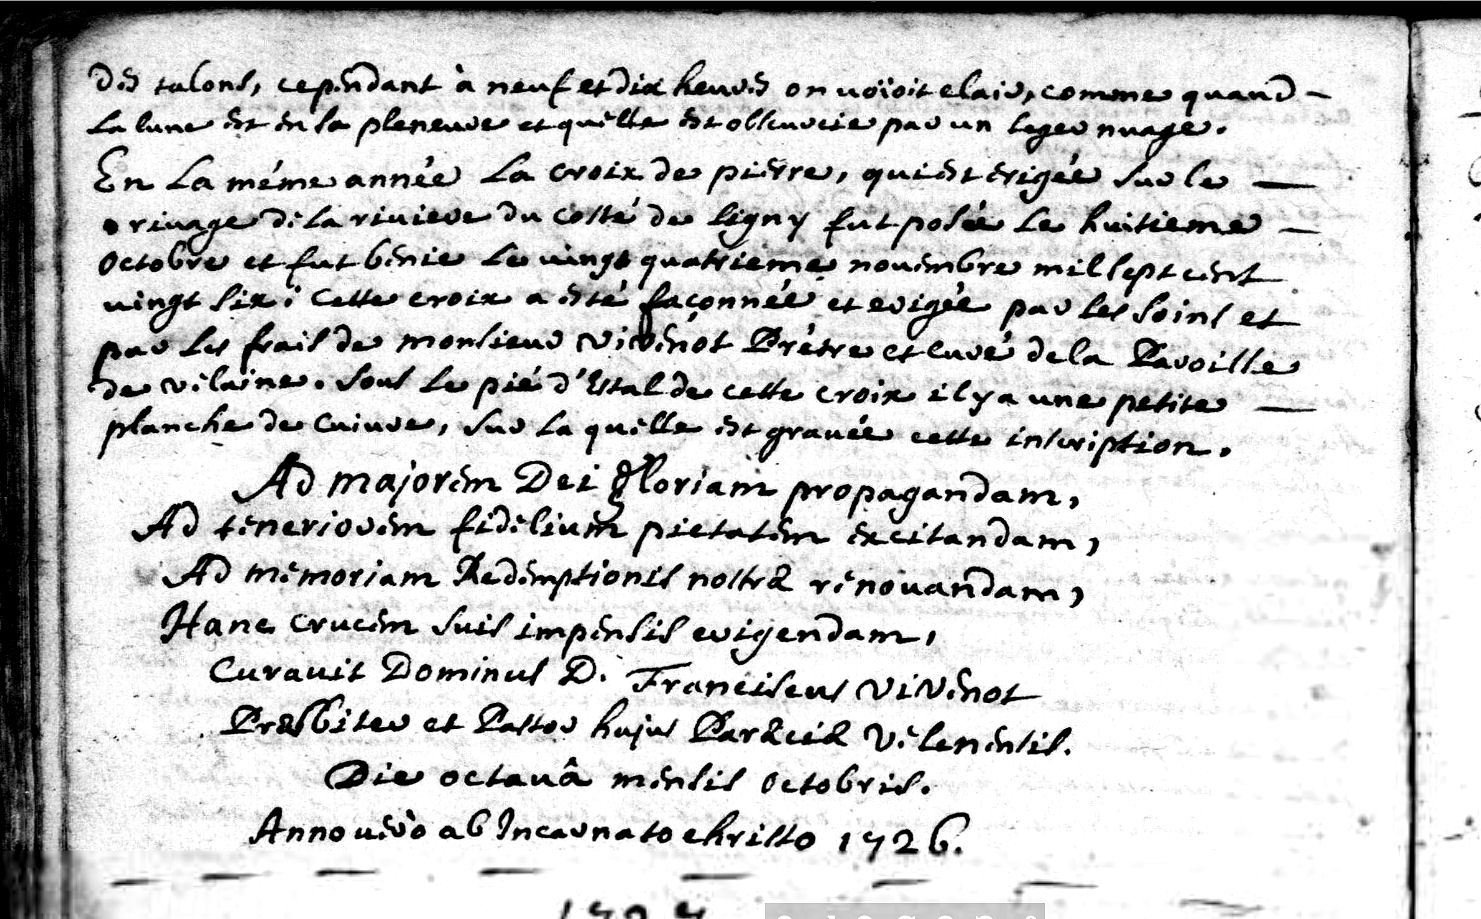 des talons, cependant à neuf et dix heures on voïoit clair, comme quand –
La lune est en sa pleneure et quelle est obscurcie par un leger nuage.
En La méme année La croix de pierre, qui est érigée sur le —
rivage de la riviere du costé de ligny fut posée Le huitieme –
octobre et fut bénie Le vingt quatrieme novembre mil sept cent
vingt six; Cette croix a esté façonnée et erigée par Les soins et
par Les frais de monsieur vivenot Prétre et curé de la Paroisse
de vilaine. sous Le pié d'Estal de cette croix il y a une petite —
planche de Cuivre, sur La quelle est gravée cette inscription.
Ad majorem Dei gloriam propagandam,
Ad teneriorem fidelium pietatem excitandam,
Ad memoriam Redemptionis nostræ renovandam,
Hanc crucem suis impensis erigendam,
Curavit Dominus D. Franciscus Vivenot
Præsbiter et Pastor hujus Paræciæ Vilenensis.
Die octavâ mensis octobris.
Anno verò ab Incarnato christo 1726.
1727